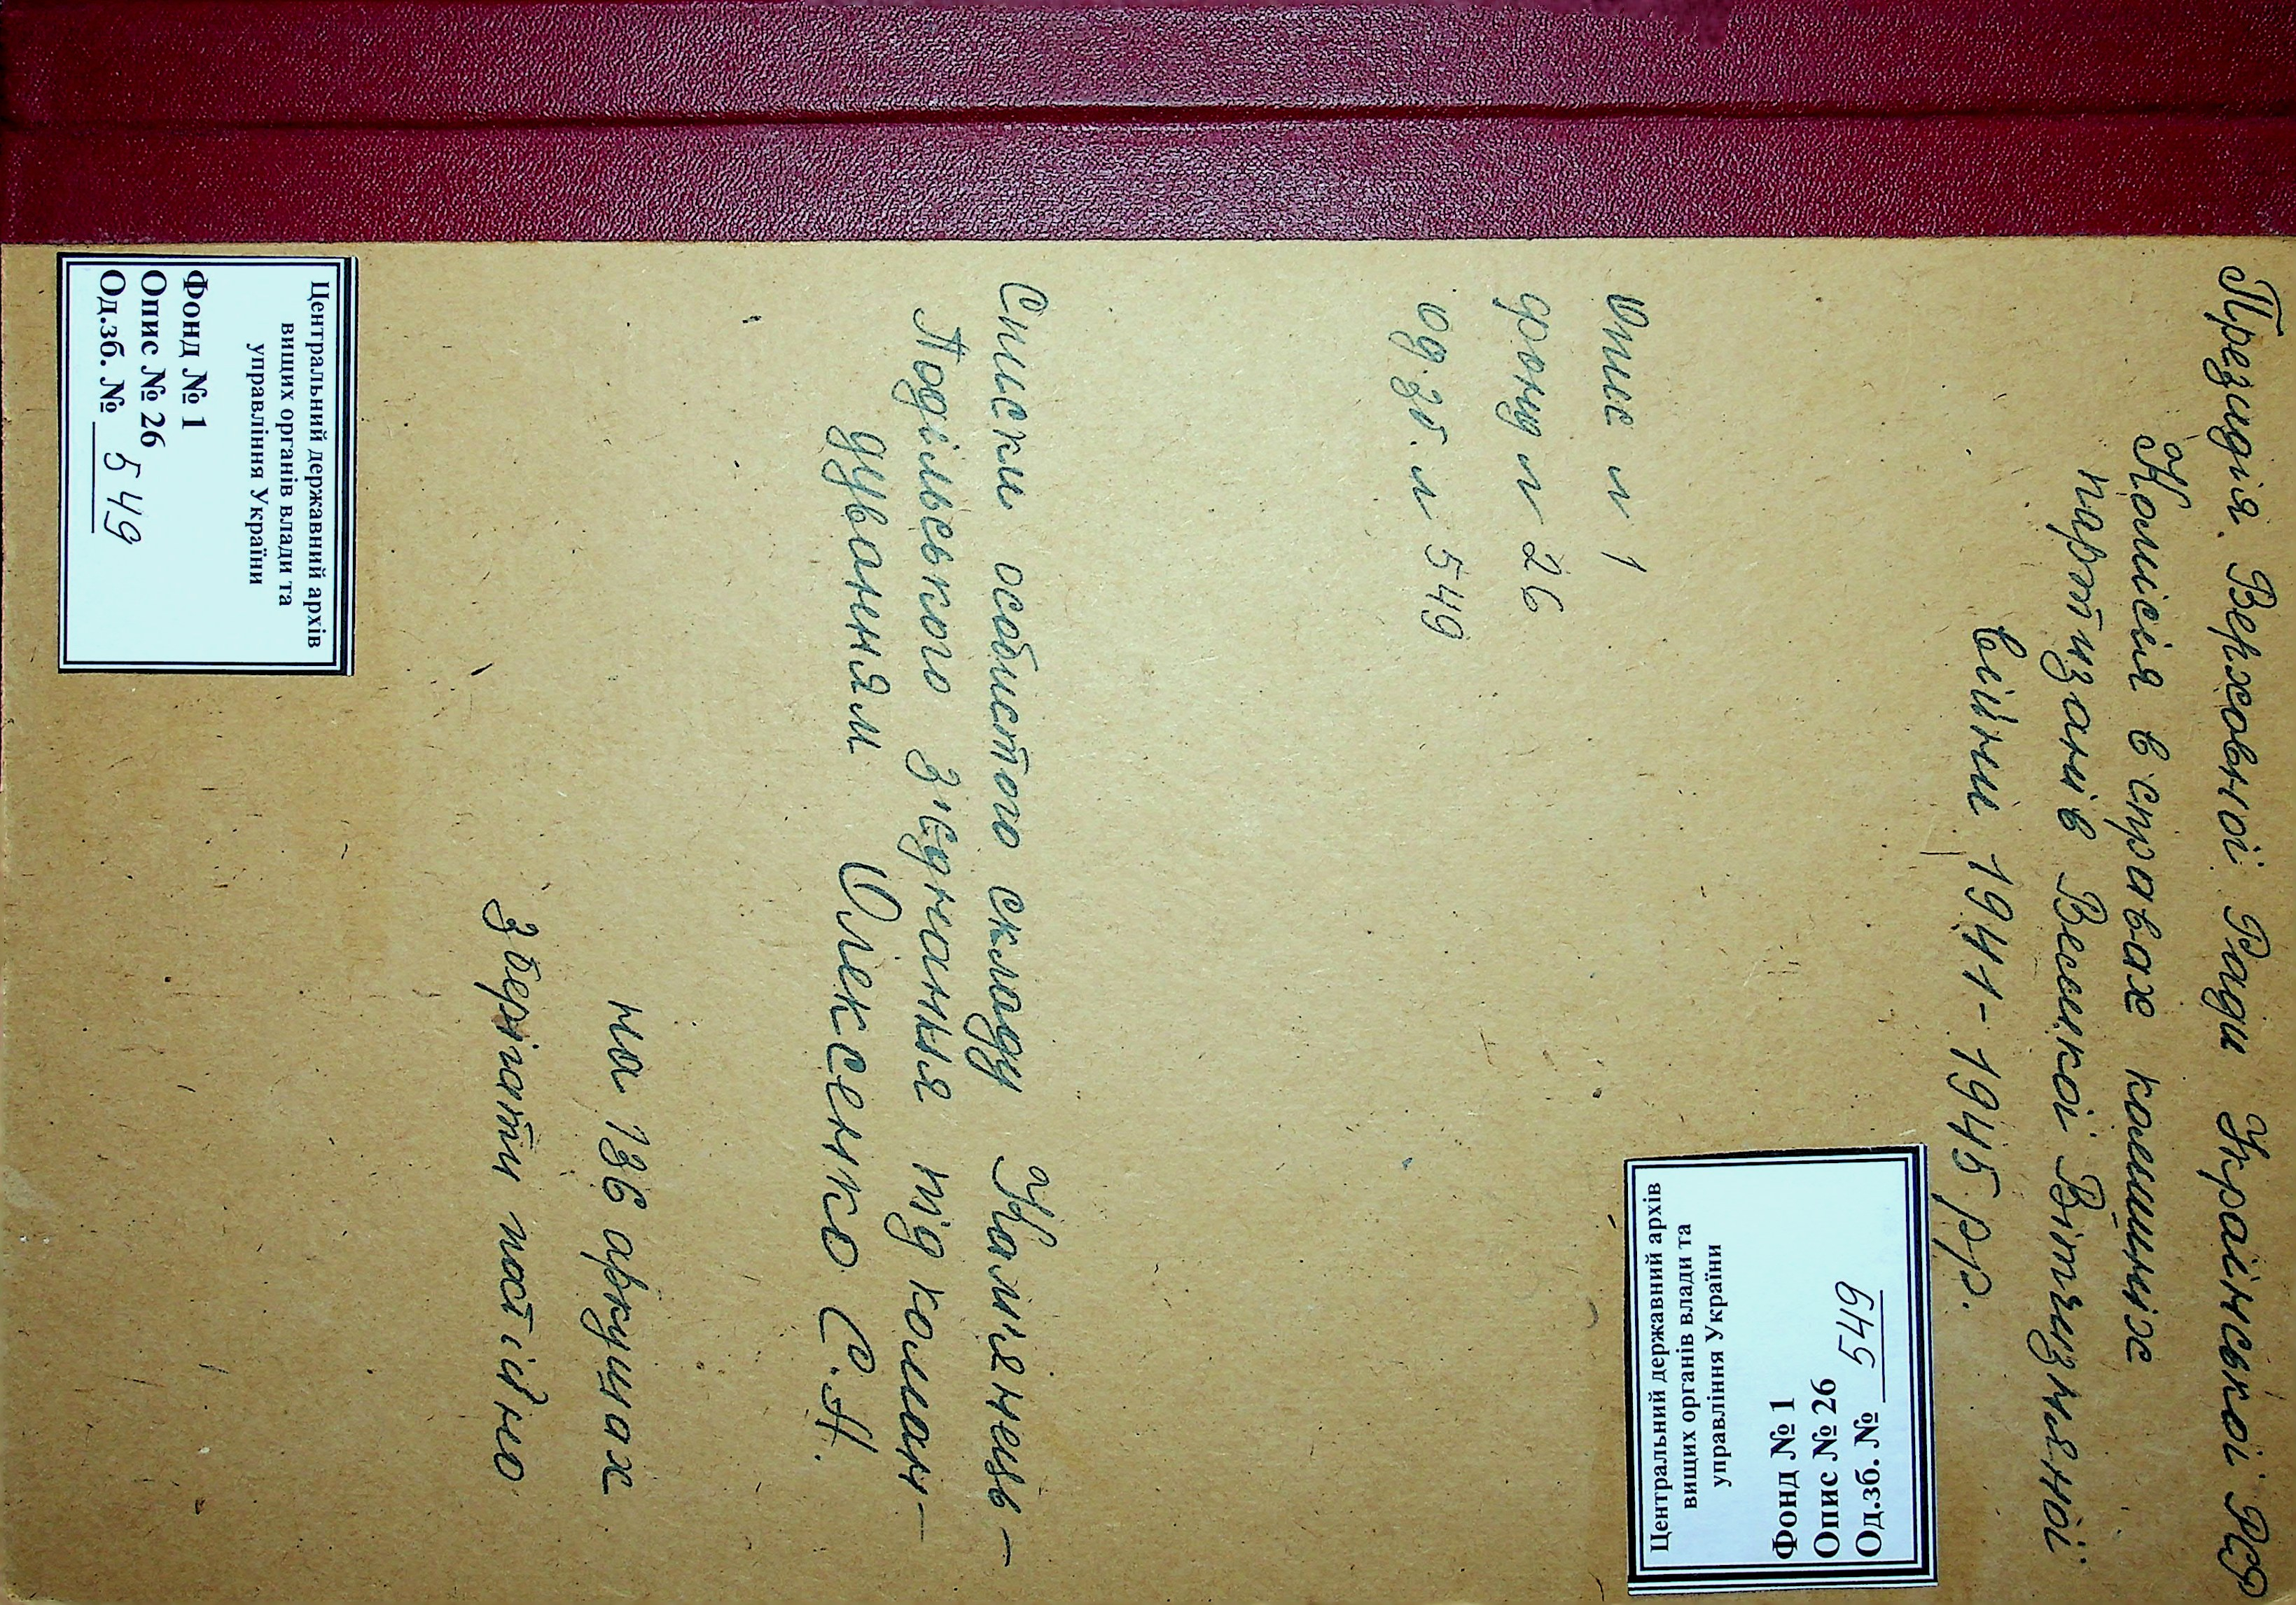 Президія Верховної Ради Української РСР
Комісія в справах колишніх
партизанів Великої Вітчизняної
війни 1941-1945 рр.
Центральний державний архів
вищих органів влади та
управління України
Фонд № 1
Опис № 26
Од.зб. № 549
Опис № 1
фонду № 26
од.зб. № 549
Списки особистого складу Кам'янець-
Подільського з'єднання під коман-
дуванням Олексенко С.А.
на 136 аркушах
зберігати постійно
Центральний державний архів
вищих органів влади та
управління України
Фонд № 1
Опис № 26
Од.зб. № 549